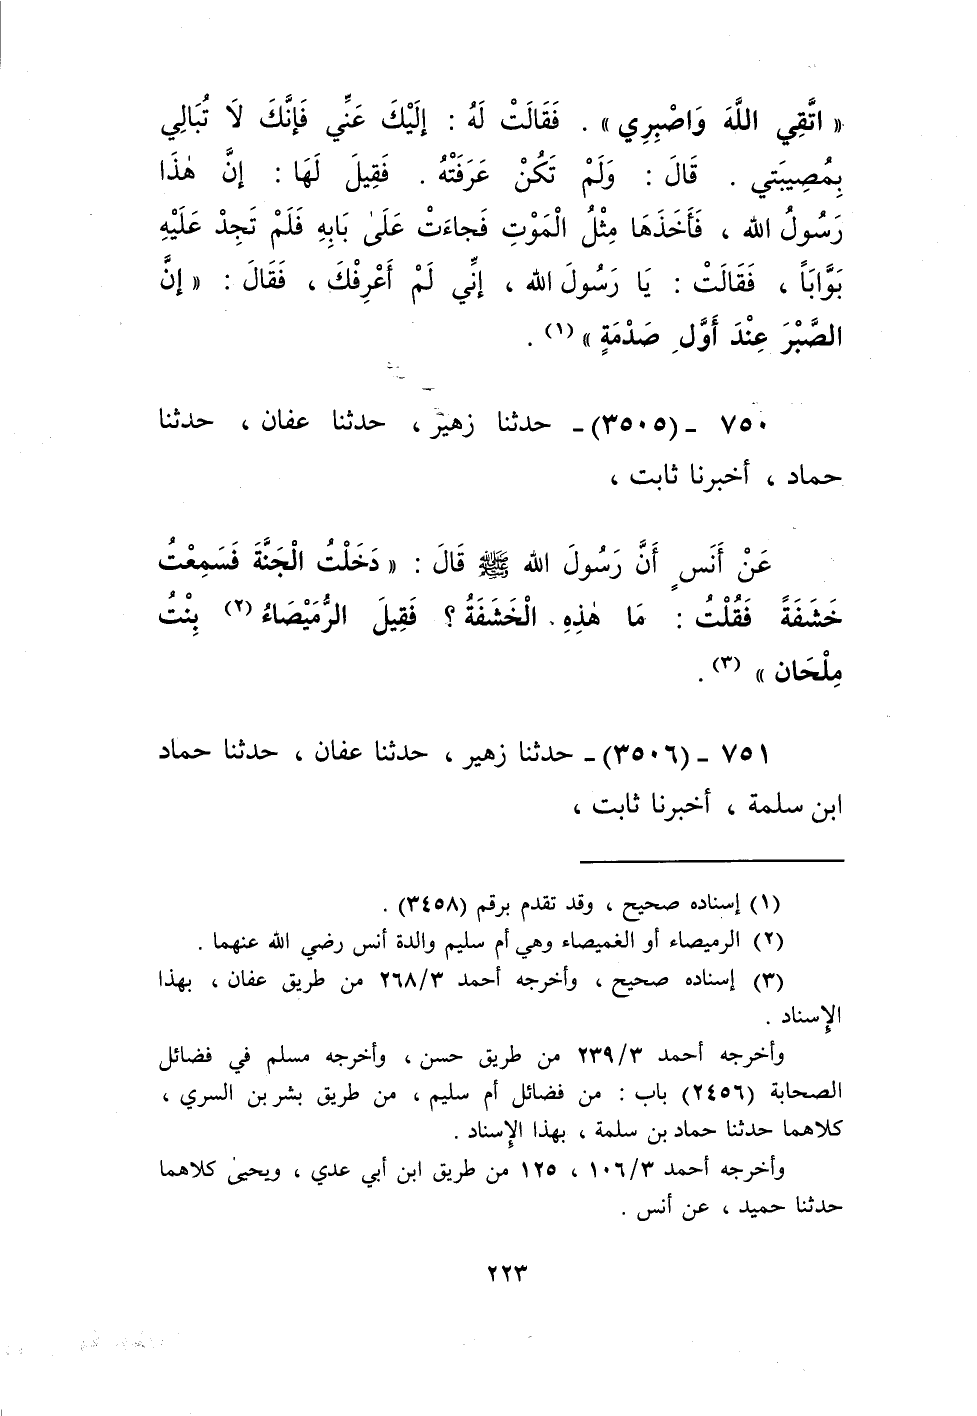 « اتَّقِي اللَّهَ وَاصْبِرِي » . فَقَالَتْ لَهُ : إِلَيْكَ عَنِّي فَإِنَّكَ لَا تُبَالِي
بِمُصِيبَتِي . قَالَ : وَلَمْ تَكُنْ عَرَفَتْهُ . فَقِيلَ لَهَا : إِنَّ هٰذَا
رَسُولُ الله ، فَأَخَذَهَا مِثْلُ الْمَوْتِ فَجاءَتْ عَلَىٰ بَابِهِ فَلَمْ تَجِدْ عَلَيْهِ
بَوَّابَاً ، فَقَالَتْ : يَا رَسُولَ الله ، إِنِّي لَمْ أَعْرِفْكَ ، فَقَالَ : « إِنَّ
الصَّبْرَ عِنْدَ أَوَّلِ صَدْمَةٍ » (١) .
٧٥٠ ـ (٣٥٠٥) ـ حدثنا زهير ، حدثنا عفان ، حدثنا
حماد ، أخبرنا ثابت ،
عَنْ أَنَسٍ أَنَّ رَسُولَ الله ﷺ قَالَ : « دَخَلْتُ الْجَنَّةَ فَسَمِعْتُ
خَشَفَةً فَقُلْتُ : مَا هٰذِهِ الْخَشَفَةُ ؟ فَقِيلَ الرُّمَيْصَاءُ (٢) بِنْتُ
مِلْحَان » (٣) .
٧٥١ ـ (٣٥٠٦) ـ حدثنا زهير ، حدثنا عفان ، حدثنا حماد
ابن سلمة ، أخبرنا ثابت ،
(١) إسناده صحيح ، وقد تقدم برقم (٣٤٥٨) .
(٢) الرميصاء أو الغميصاء وهي أم سليم والدة أنس رضي الله عنهما .
(٣) إسناده صحيح ، وأخرجه أحمد ٢٦٨/٣ من طريق عفان ، بهذا
الإسناد .
وأخرجه أحمد ٢٣٩/٣ من طريق حسن ، وأخرجه مسلم في فضائل
الصحابة (٢٤٥٦) باب : من فضائل أم سليم ، من طريق بشر بن السري ،
كلاهما حدثنا حماد بن سلمة ، بهذا الإسناد .
وأخرجه أحمد ١٠٦/٣ ، ١٢٥ من طريق ابن أبي عدي ، ويحيىٰ كلاهما
حدثنا حميد ، عن أنس .
٢٢٣